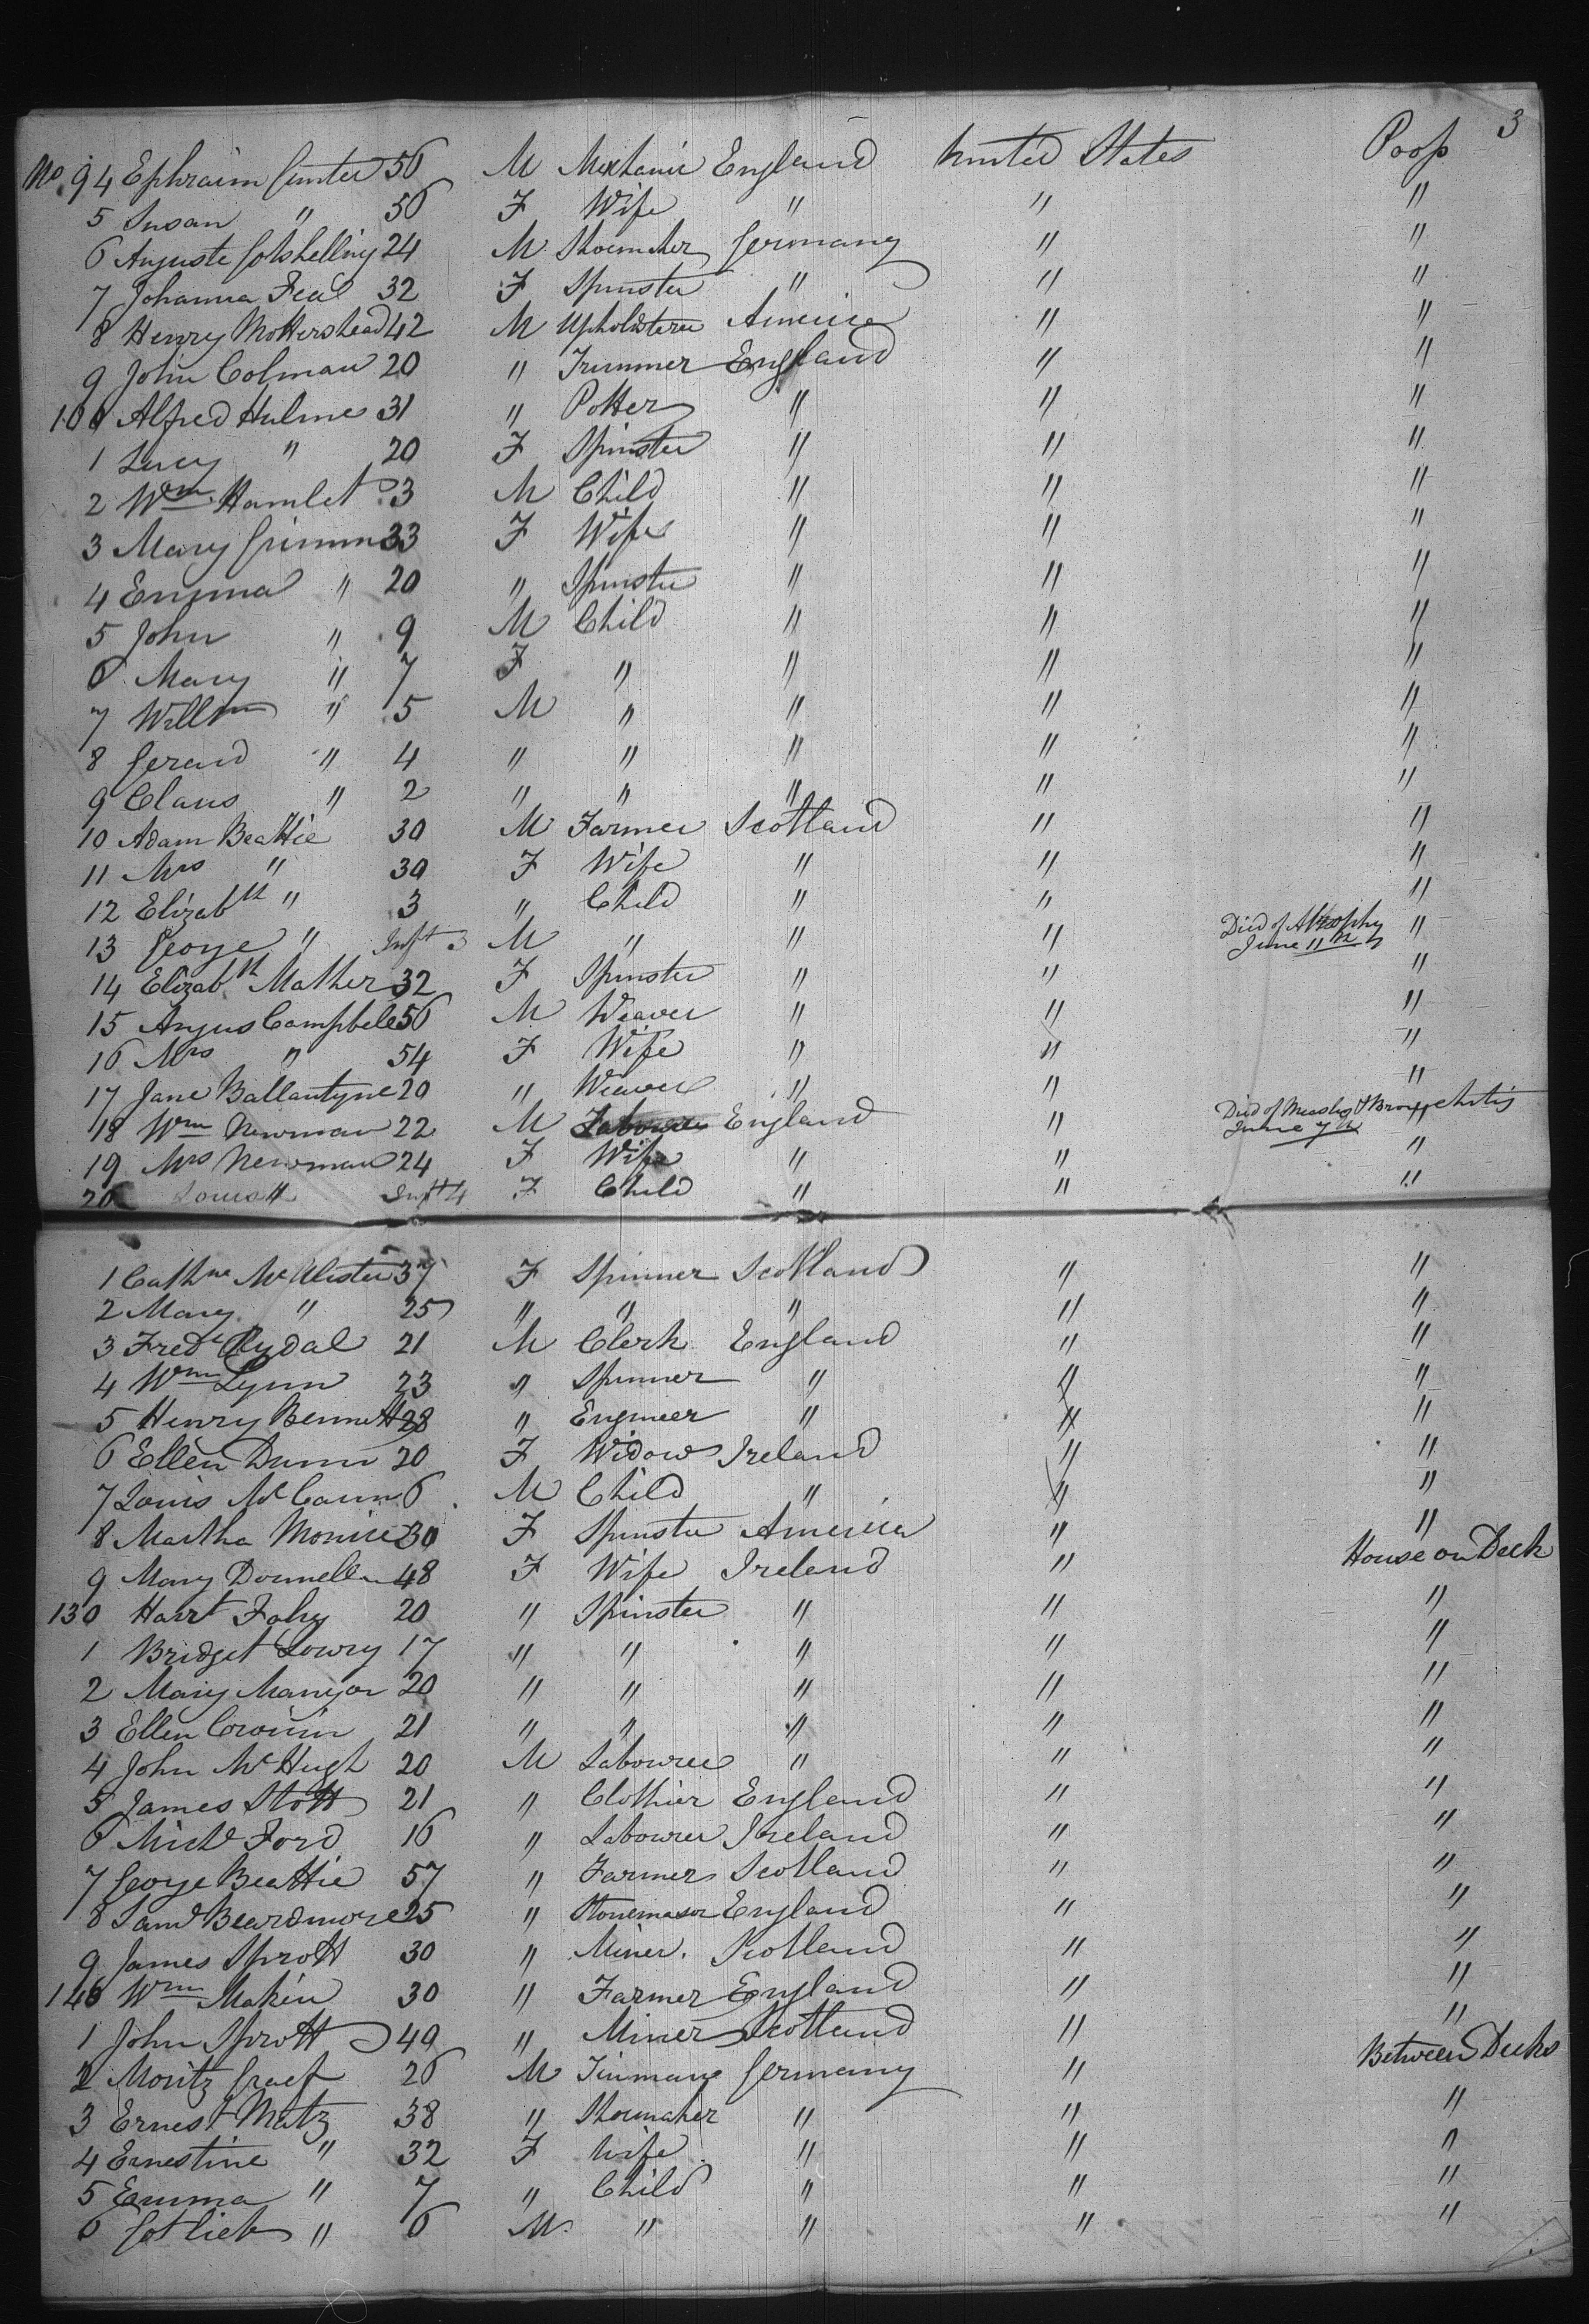 3
No. 94 Ephraim Gunter 56 M Mechanic England United States Poop
5 Susan " 56 F Wife " " "
6 Auguste Gotshelling 24 M Shoemaker Germany " "
7 Johanna Feal 32 F Spinster " " "
8 Henry Mottershead 42 M Upholsterer America " "
9 John Colman 20 " Trimmer England " "
100 Alfred Hulme 31 " Potter " " "
1 Lucy " 20 F Spinster " " "
2 Wm Hamlet 3 M Child " " "
3 Mary Grimm 33 F Wife " " "
4 Emma " 20 " Spinster " " "
5 John " 9 M Child " " "
6 Mary " 7 F " " " "
7 Willm " 5 M " " " "
8 Gerard " 4 " " " " "
9 Claus " 2 " " " " "
10 Adam Beattie 30 M Farmer Scotland " "
11 Mrs " 30 F Wife " " "
12 Elizabth " 3 " Child " " "
13 George " Inft 3 M " " " Died of Atrophy June 11th "
14 Elizabth Mather 32 F Spinster " " "
15 Angus Campbell 56 M Weaver " " "
16 Mrs " 54 F Wife " " "
17 Jane Ballantyne 20 " Weaver " " "
18 Wm Newman 22 M Labourer England " Died of Measles & Bronchitis June 7th "
19 Mrs Newman 24 F Wife " " "
20 Louis " Inft 4 F Child " " "
1 Cathne McAlister 37 F Spinner Scotland " "
2 Mary " 25 " " " " "
3 Fredk Rydal 21 M Clerk England " "
4 Wm Lynn 23 " Spinner " " "
5 Henry Bennett 28 " Engineer " " "
6 Ellen Dunn 20 F Widow Ireland " "
7 Louis McCann 6 M Child " " "
8 Martha Monice 30 F Spinster America " "
9 Mary Donnellan 48 F Wife Ireland " House on Deck
130 Harrt Fahy 20 " Spinster " " "
1 Bridget Lowry 17 " " " " "
2 Mary Manyon 20 " " " " "
3 Ellen Cronin 21 " " " " "
4 John McHugh 20 M Labourer " " "
5 James Stott 21 " Clothier England " "
6 Michl Ford 16 " Labourer Ireland " "
7 George Beattie 57 " Farmer Scotland " "
8 Saml Beardmore 25 " Stonemason England " "
9 James Sprott 30 " Miner. Scotland " "
140 Wm Makin 30 " Farmer England " "
1 John Sprott 49 " Miner Scotland " "
2 Moritz Graef 26 M Tinman Germany " Between Decks
3 Ernest Matz 38 " Shoemaker " " "
4 Ernestine " 32 F Wife " " "
5 Emma " 7 " Child " " "
6 Gotlieb " 6 M " " " "